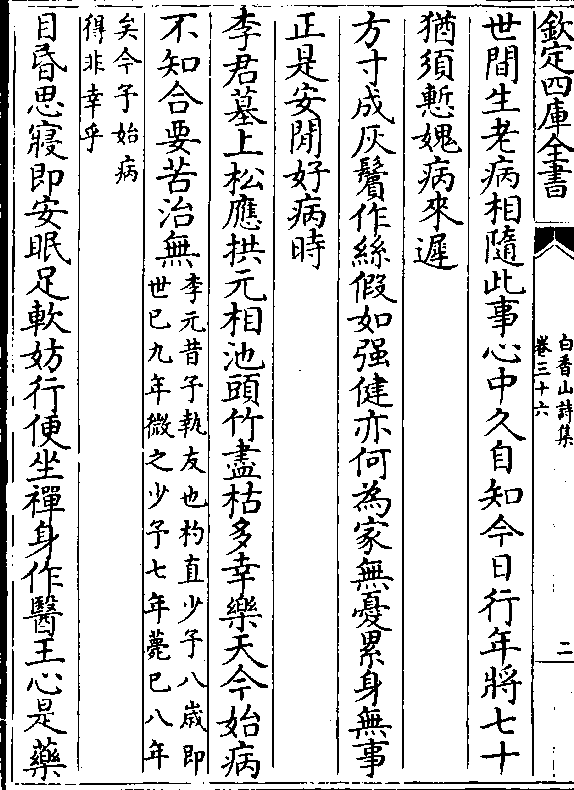 欽定四庫全書
白香山詩集
卷三十六
二
世間生老病相隨此事心中久自知今日行年將七十
猶須慙媿病來遲
方寸成灰鬢作絲假如强健亦何為家無憂累身無事
正是安閒好病時
李君墓上松應拱元相池頭竹盡枯多幸樂天今始病
不知合要苦治無
李元昔予執友也杓直少予八歲即
世已九年微之少予七年薨已八年
矣今予始病
得非幸乎
目昏思寢即安眠足軟妨行便坐禪身作醫王心是藥